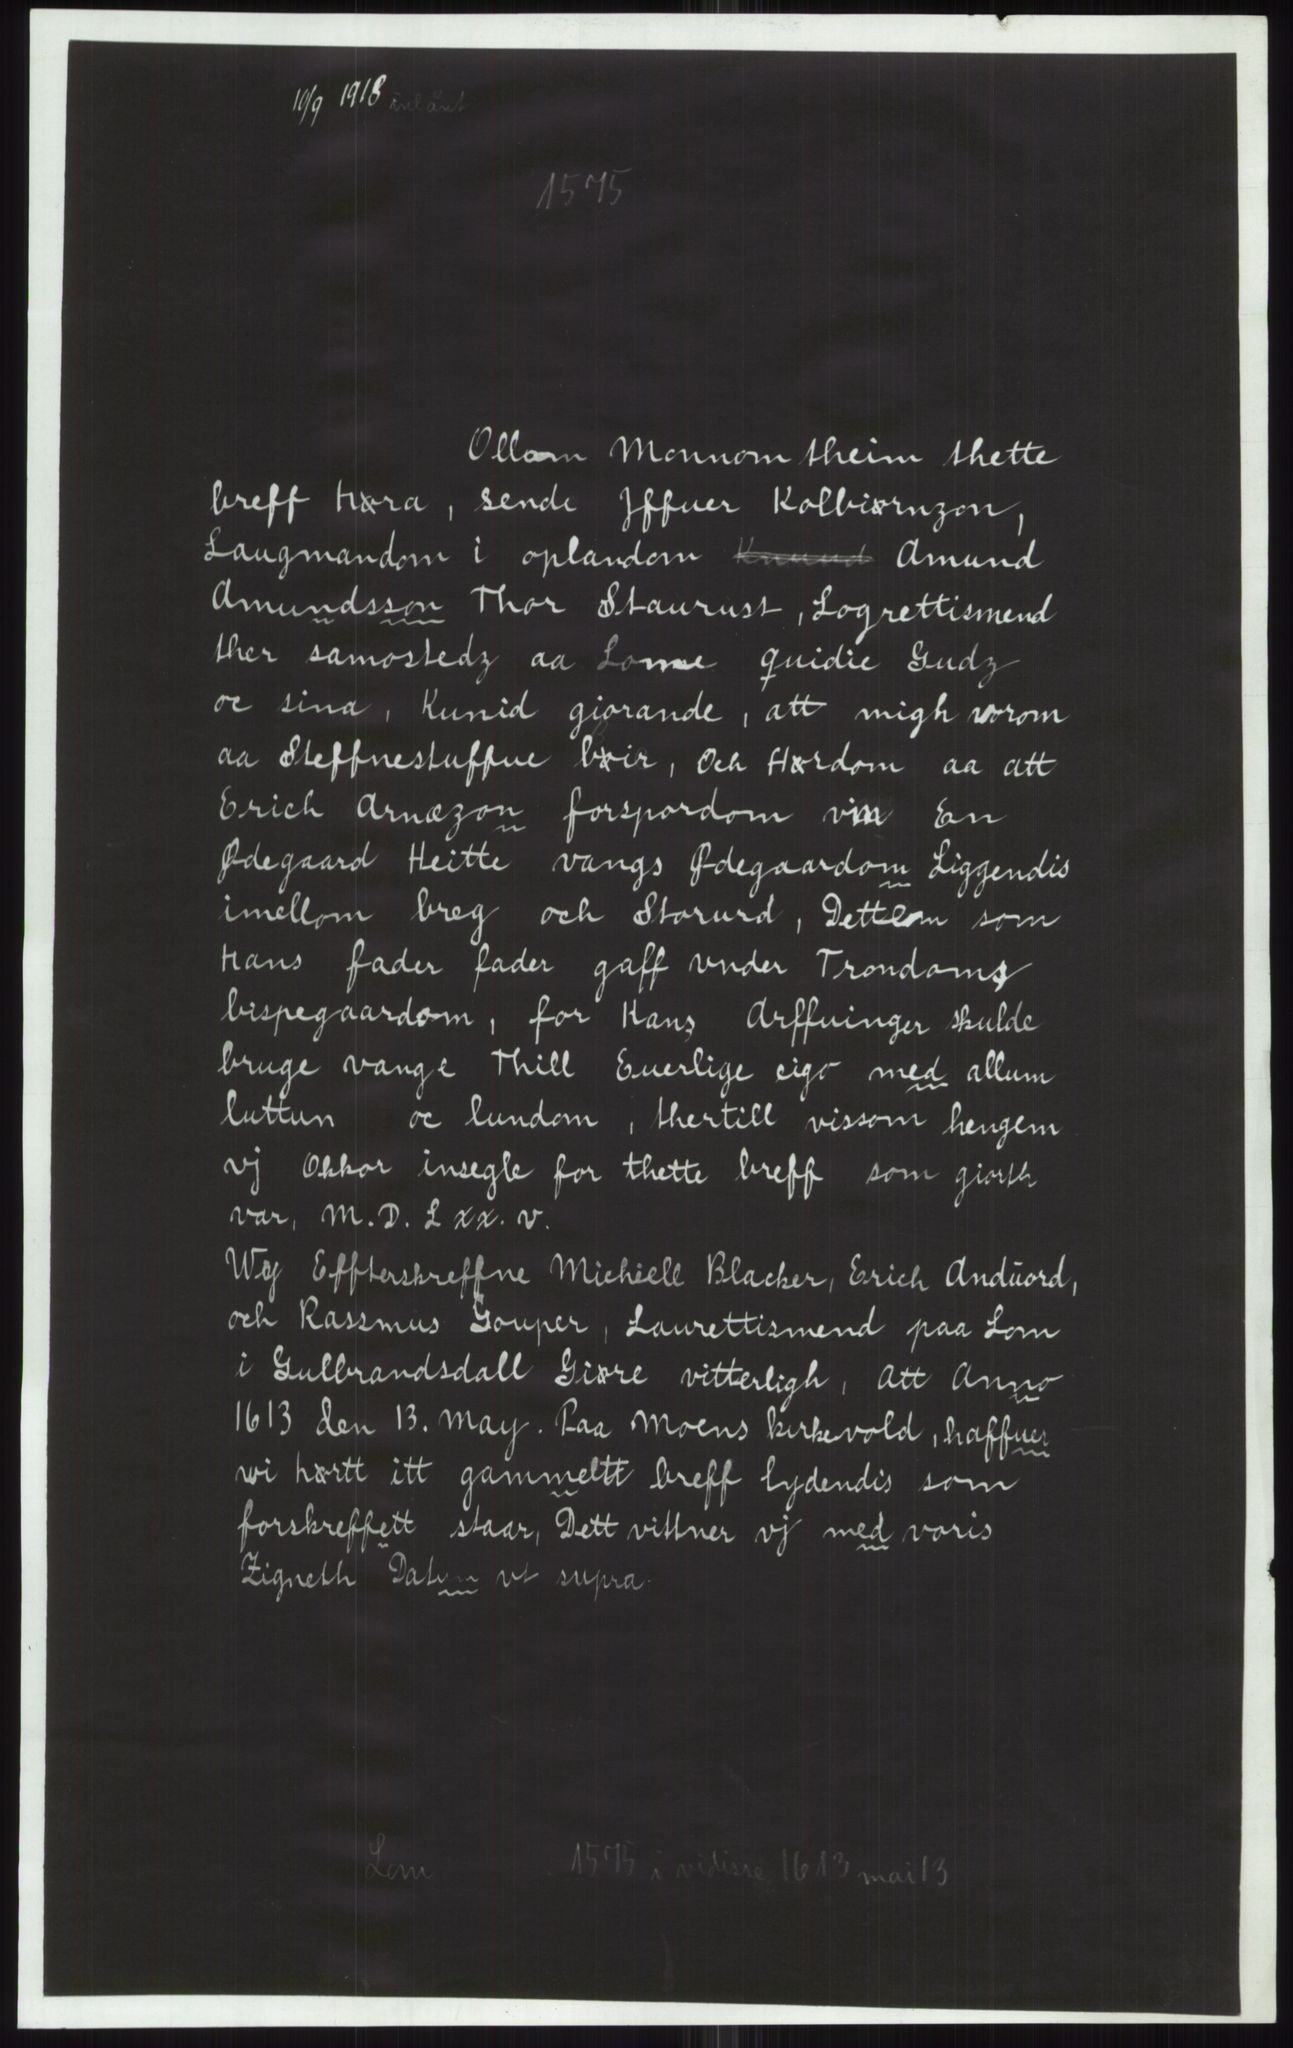 10/9 1918 innlånt
1575
Ollom Monnom theim thette
breff høra, sende Jffuer Kolbiørnzon,
Laugmandom i oplandom Knuud Amund
Amundsson Thor Staurust, Logrettismend
ther samostedz aa Lome quidie Gudz
oc sina, Kunid giorande, att migh vorom
aa Steffnestuffue bøir, och Hørdom aa att
Erich Arnæzon forspordom vm En
Ødegaard Heitte vangs Ødegaardom Liggendis
imellom breg och Storurd, Dettom som
hans fader fader gaff vnder Trondoms
bispegaardom, for Hans Arffuinger skulde
bruge vange Thill Euerlige eigo med allum
luttun oc lundom, thertill vissom hengem
vj Okkor insegle for thette breff som giorth
var, M.D.Lxx.v.
Wy Effterskreffne Michiell Blacker, Erich Anduord,
och Rassmus Gouper, Laurettismend paa Lom
i Gulbrandsdall Giøre vitterligh, att Anno
1613 den 13. May. Paa Moens kirkevold, haffuer
wi hørtt itt gammeltt breff lydendis som
forskreffett staar, Dett vittner vj med voris
Zigneth Datum vt supra.
Lom 1575 i vidisse 1613 mai 13